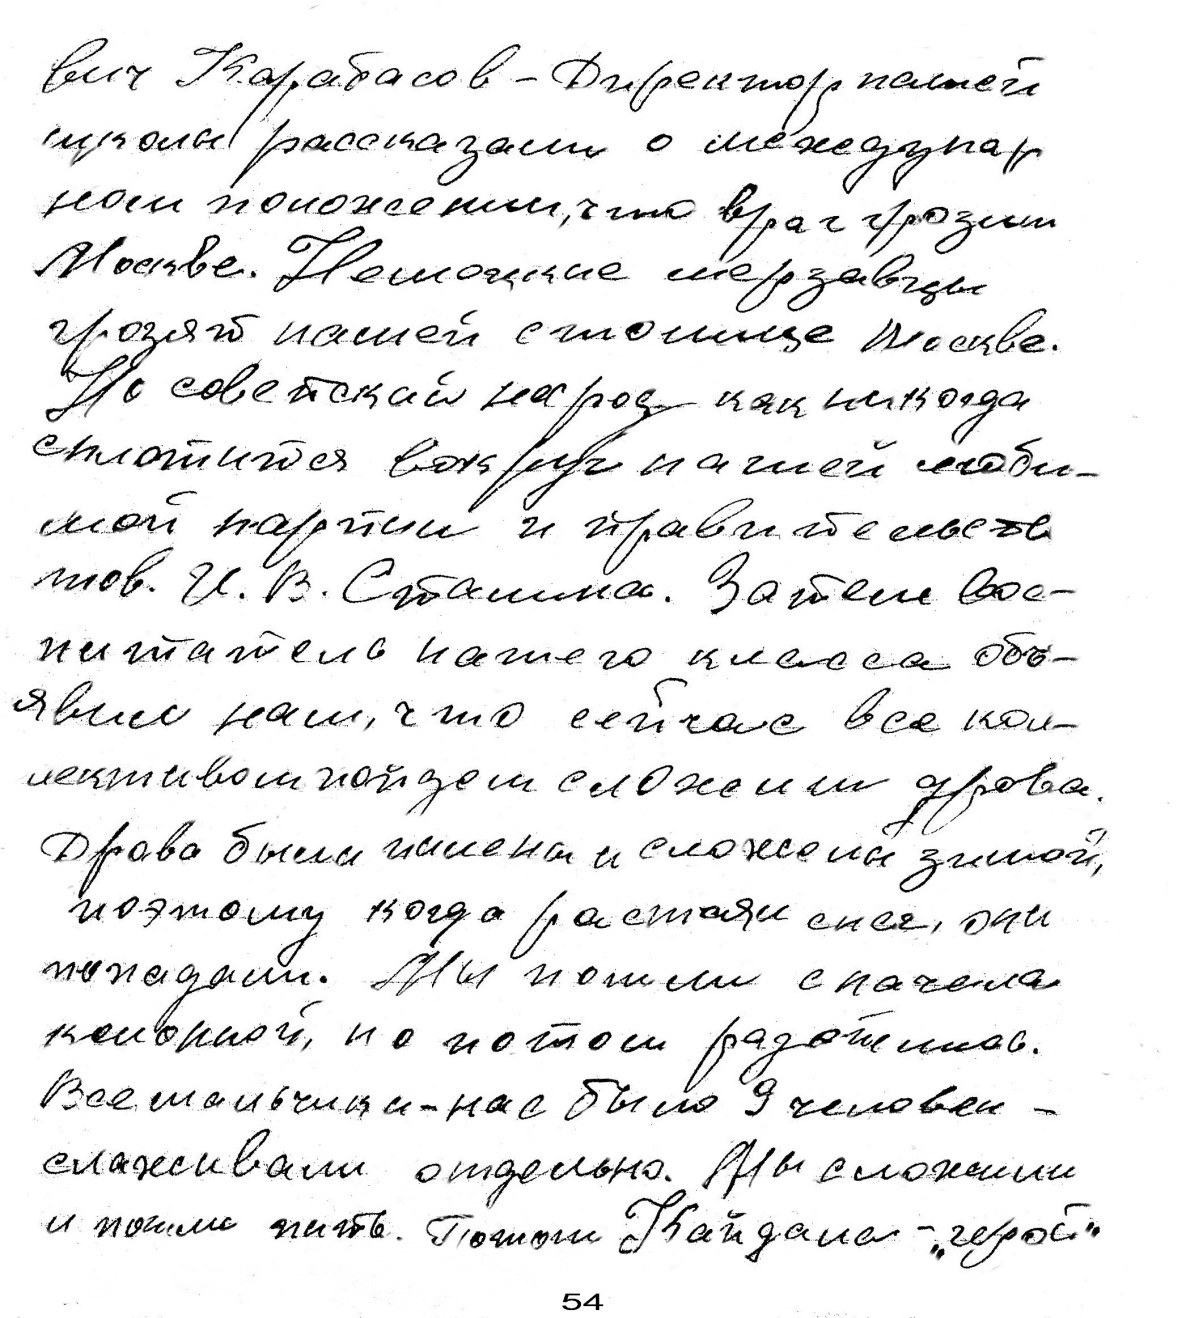 вич Карабасов – Директор нашей
школы рассказали о междунар
ном положении, что враг грозит
Москве. Немецкие мерзавцы
грозят нашей столице Москве.
Но советский народ как никогда
сплотится вокруг нашей люби-
мой партии и правительств
тов. И. В. Сталина. Затем вос-
питатель нашего класса объ-
явил нам, что сейчас все кол-
лективом пойдем сложим дрова.
Дрова были пилены и сложены зимой,
поэтому когда растаял снег, они
попадали. Мы пошли сначала
колонной, но потом разбились.
Все мальчики – нас было 9 человек –
слаживали отдельно. Мы сложили
и пошли пить. Потом Кайдала – „герой“
54